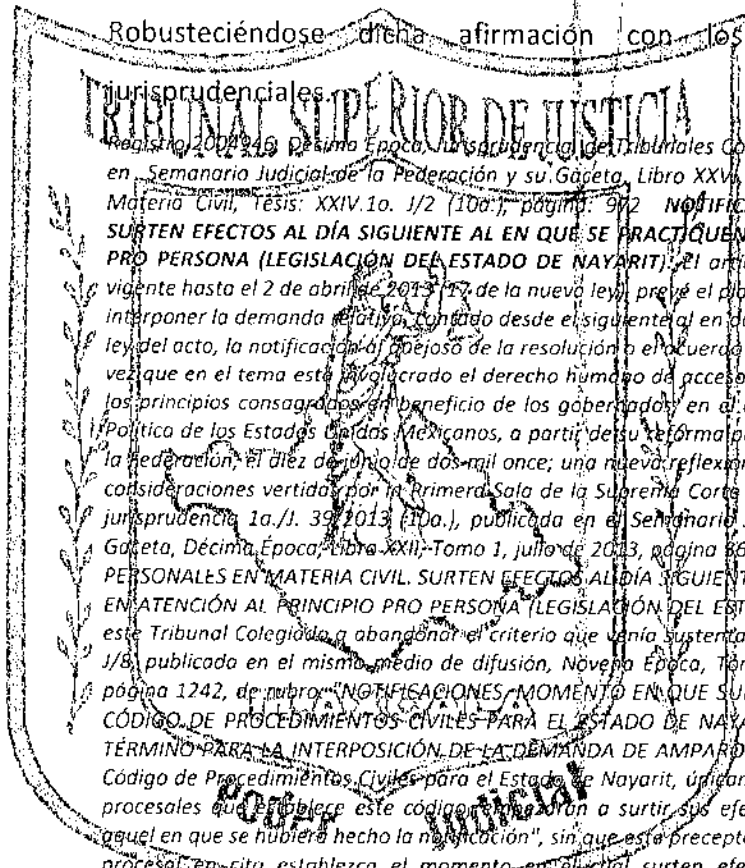 Robusteciéndose dicha afirmación con los
jurisprudenciales.
TRIBUNAL SUPERIOR DE JUSTICIA
Registro 2004946, Décima Época, Jurisprudencia, de Tribunales Co
en Semanario Judicial de la Federación y su Gaceta, Libro XXVI,
Materia Civil, Tesis: XXIV.1o. J/2 (10a.), página: 972 NOTIFIC
SURTEN EFECTOS AL DÍA SIGUIENTE AL EN QUE SE PRACTIQUEN
PRO PERSONA (LEGISLACIÓN DEL ESTADO DE NAYARIT). El art
vigente hasta el 2 de abril de 2013 (17 de la nueva ley), prevé el pla
interponer la demanda relativa, contado desde el siguiente al en
ley del acto, la notificación al quejoso de la resolución o el acuerdo
vez que en el tema está involucrado el derecho humano de acceso
los principios consagrados en beneficio de los gobernados, en el
Política de los Estados Unidos Mexicanos, a partir de su reforma p
la Federación, el diez de junio de dos mil once; una nueva reflexión
consideraciones vertidas por la Primera Sala de la Suprema Corte
jurisprudencia 1a./J. 39/2013 (10a.), publicada en el Semanario
Gaceta, Décima Época, Libro XXII, Tomo 1, julio de 2013, página
PERSONALES EN MATERIA CIVIL. SURTEN EFECTOS AL DÍA SIGUIENT
EN ATENCIÓN AL PRINCIPIO PRO PERSONA (LEGISLACIÓN DEL EST
este Tribunal Colegiado a abandonar el criterio que venía sustenta
J/8, publicada en el mismo medio de difusión, Novena Época, To
página 1242, de rubro: "NOTIFICACIONES, MOMENTO EN QUE SU
TLAXCALA
CÓDIGO DE PROCEDIMIENTOS CIVILES PARA EL ESTADO DE NAYA
TÉRMINO PARA LA INTERPOSICIÓN DE LA DEMANDA DE AMPARO
Código de Procedimientos Civiles para el Estado de Nayarit, únicam
procesales que establece este código empezarán a surtir sus efe
Poder Judicial
aquel en que se hubiere hecho la notificación", sin que este precept
procesal en cita establezca el momento en surten efe